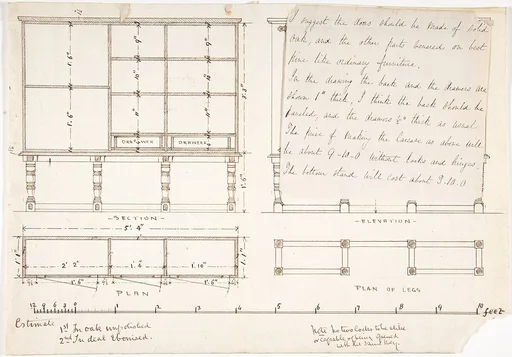 I suggest the doors should be made of solid
oak, and the other parts veneered on best
pine like ordinary furniture.
In the drawing the back and the drawers are
shown 1" thick, I think the back should be
panelled, and the drawers ⅜" thick as usual.
The price of making the carcase as above will
be about 9-10-0 without locks and hinges.
The bottom stand will cost about 3.10.0
1'.6"
1'.6"
9"
10"
11"
9"
10"
11"
DRAWER
DRAWERS
3'.3"
1'.6"
-SECTION-
-ELEVATION-
5'. 4"
2'. 2"
1'.6"
1'.10"
1'.6"
1'.6"
PLAN
PLAN OF LEGS
12 9 6 3 0 1 2 3 4 5 6 7 8 9 10 feet
Estimate 1st In oak unpolished
2nd In deal Ebonised.
Note no two locks to be alike
or capable of being opened
with the same key.